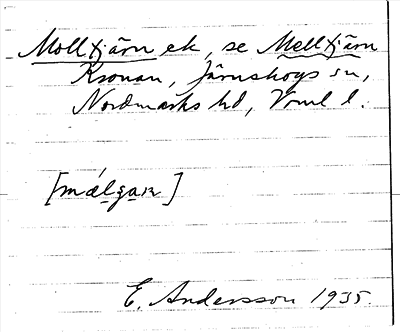 Molltjärn ek, se Melltjärn
Kronan, Järnskogs sn,
Nordmarks hd, Vrml l.
[mǽlgan]
E. Andersson 1935.